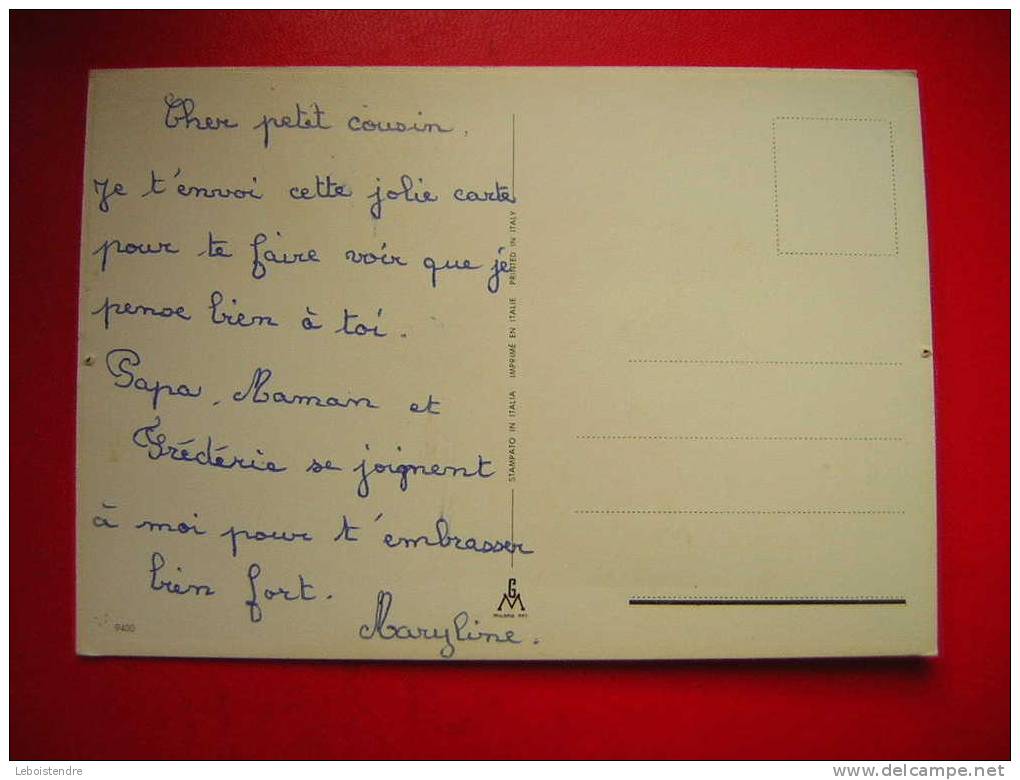 Cher petit cousin.
Je t'envoi cette jolie carte
pour te faire voir que je
pense bien à toi.
Papa, Maman et
Frédéric se joignent
à moi pour t'embrasser
bien fort.
Maryline.
STAMPATO IN ITALIA IMPRIMÉ EN ITALIE PRINTED IN ITALY
GM
9400
Leboistendre
www.delcampe.net